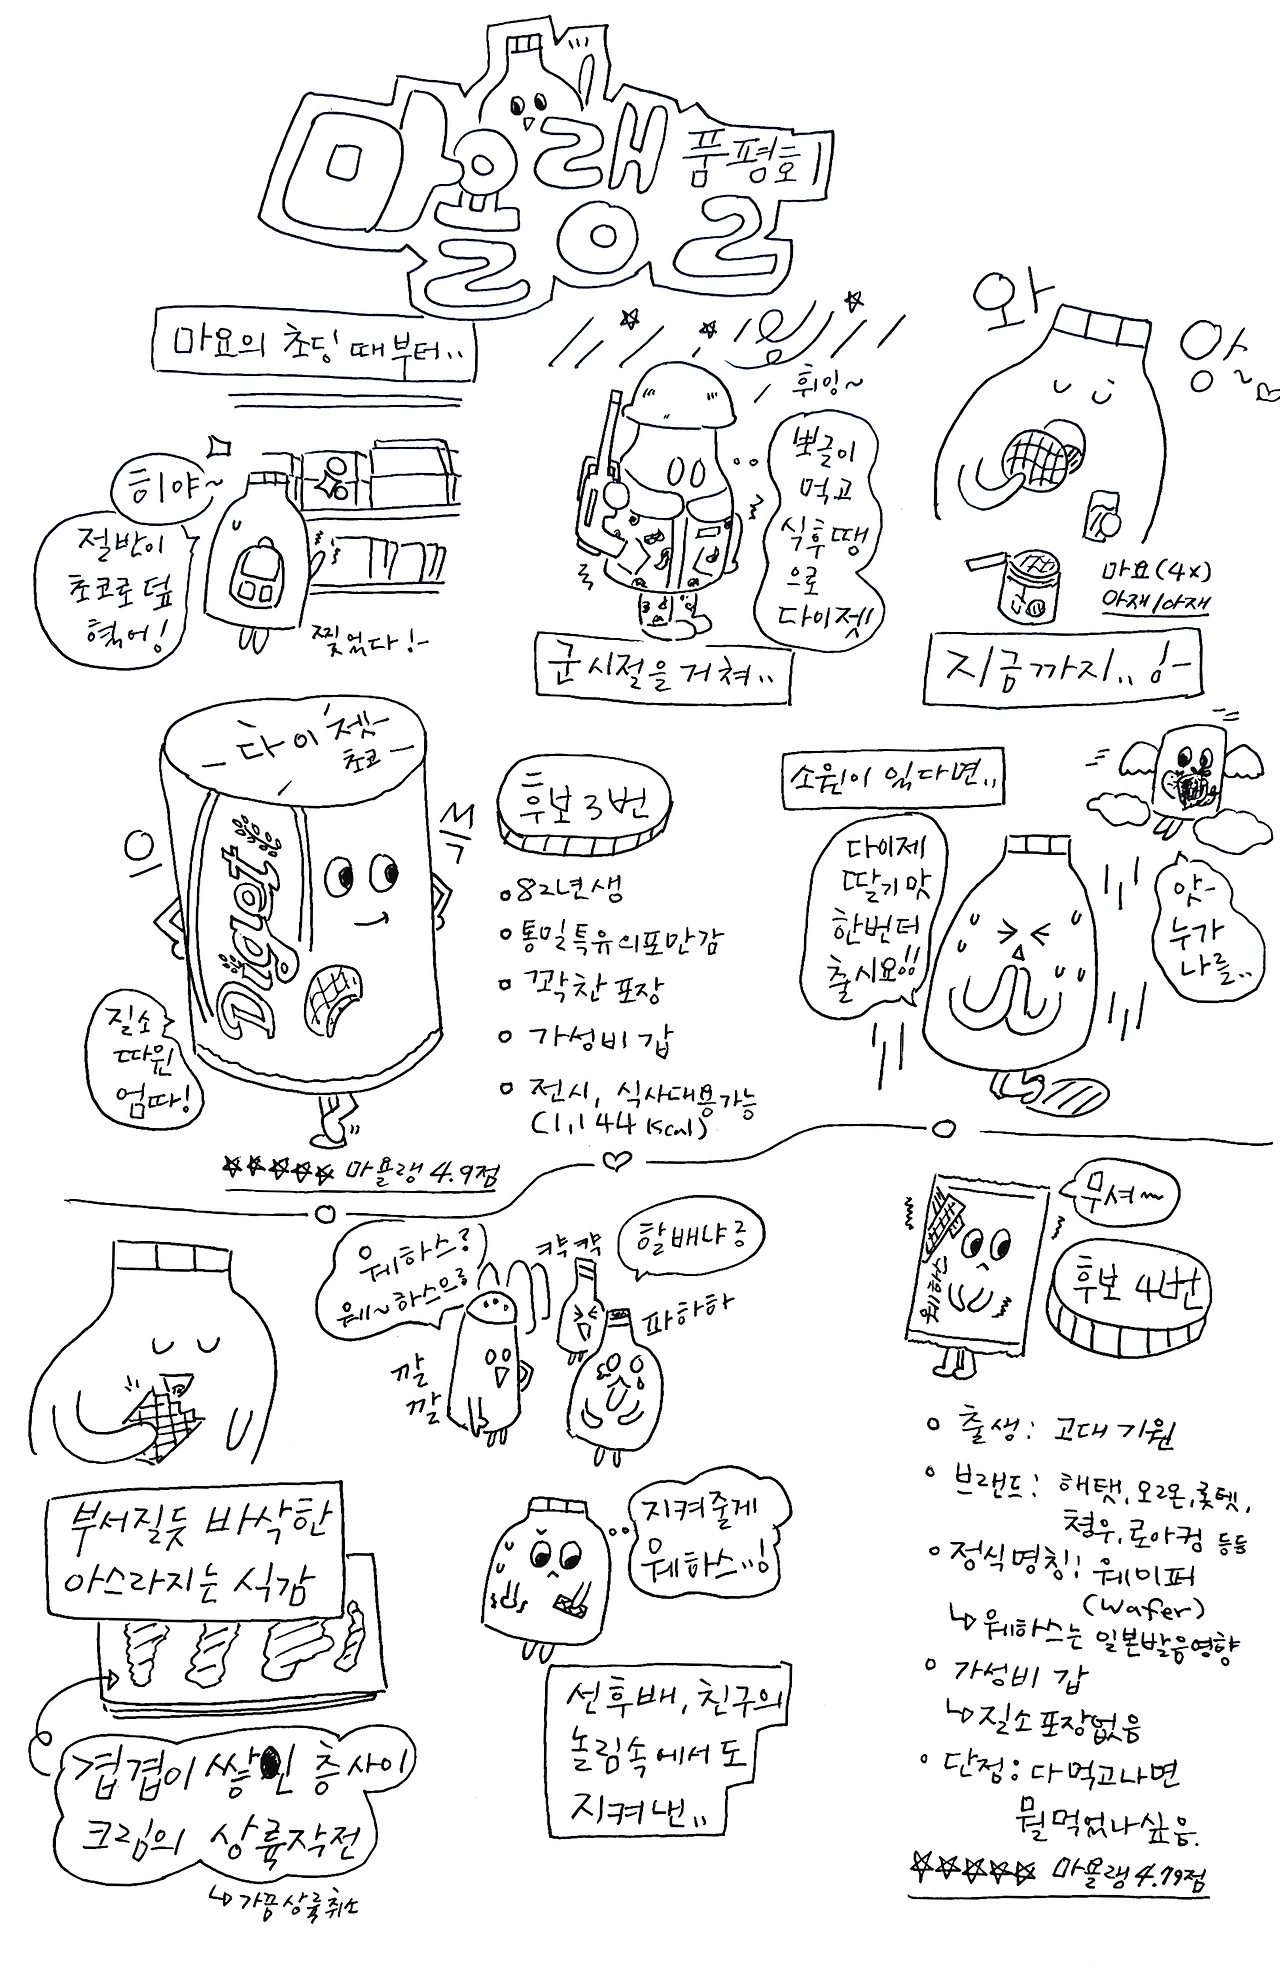 마욜랭 품평회
마요의 초딩 때부터..
히야~
절반이
초코로 덮
혔어!
찢었다!~
휘잉~
뽀글이
먹고
식후땡
으로
다이젯!!
군시절을 거쳐..
와
앙~
마요(4x)
아재/아재
지금까지..!~
다이젯
초코
Diget
으
쓱
질소
따윈
없따!
후보 3번
82년생
통밀특유의포만감
꽉찬 포장
가성비 갑
전시, 식사대용가능
(1,144 Kcal)
☆☆☆☆☆ 마욜랭 4.9점
소원이 있다면..
다이제
딸기맛
한번더
출시요!!
앗~
누가
나를..
부서질듯 바삭한
아스라지는 식감
겹겹이 쌓인 층사이
크림의 상륙작전
↳가끔상륙취소
웨하스?
웨~하스으?
캭캭
할배냐?
깔
깔
파하하
지켜줄게
웨하스..!
선후배, 친구의
놀림속에서도
지켜낸..
무셔~
웨하스
후보 4번
출생: 고대기원
브랜드: 해탯,오리온,롯텟,
청우,로아커 등등
정식명칭: 웨이퍼
(Wafer)
↳웨하스는 일본발음영향
가성비 갑
↳질소포장없음
단점: 다먹고나면
뭘먹었나싶음.
☆☆☆☆☆ 마욜랭 4.79점